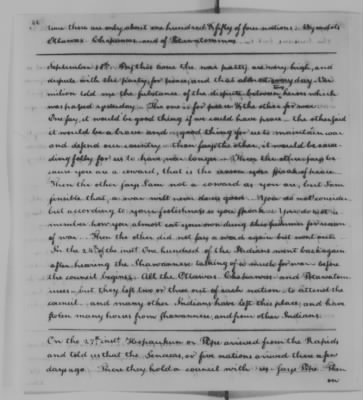 time there are only about one hundred & fifty of four nations: Wyandots
Ottawas Chepawas and of Potawatomies
September 18th. By this time the war party are very high, and
dispute with the party for peace, and that almost every day.
told me the substance of the dispute between heroes which
was passed yesterday. The one is for peace & the other for war.
One say, it would be good thing if we could have peace – the other said
it would be a brave and good thing for us to maintain war
and defend our country – then says the other, it would be
folly for us to have war longer – Then the other says be
cause you are a coward, that is the reason you speak of peace
Then the other says I am not a coward as you are, but I am
sensible that a war will never do us good. You do not consider
but according to your foolishness so you speak. You do not re
member how you almost cut your own
of war. Then the other did not say a word again but went out.
In the 24th of this inst. One hundred of the Indians went back again
after hearing the Shawanese talking of so much for war before
the council begins. All the Ottawas Chepawas and Potawatam
ies – but they left two or three out of each nation to attend the
council – and many other Indians have left this place, and have
stolen many horses from Shawannese, and from other Indians.
On the 27th inst. or Pipe arrived from the Rapids
and told us that the Senecas, or five nations arrived there a few
days ago. There they hold a council with us – says Pipe. Then